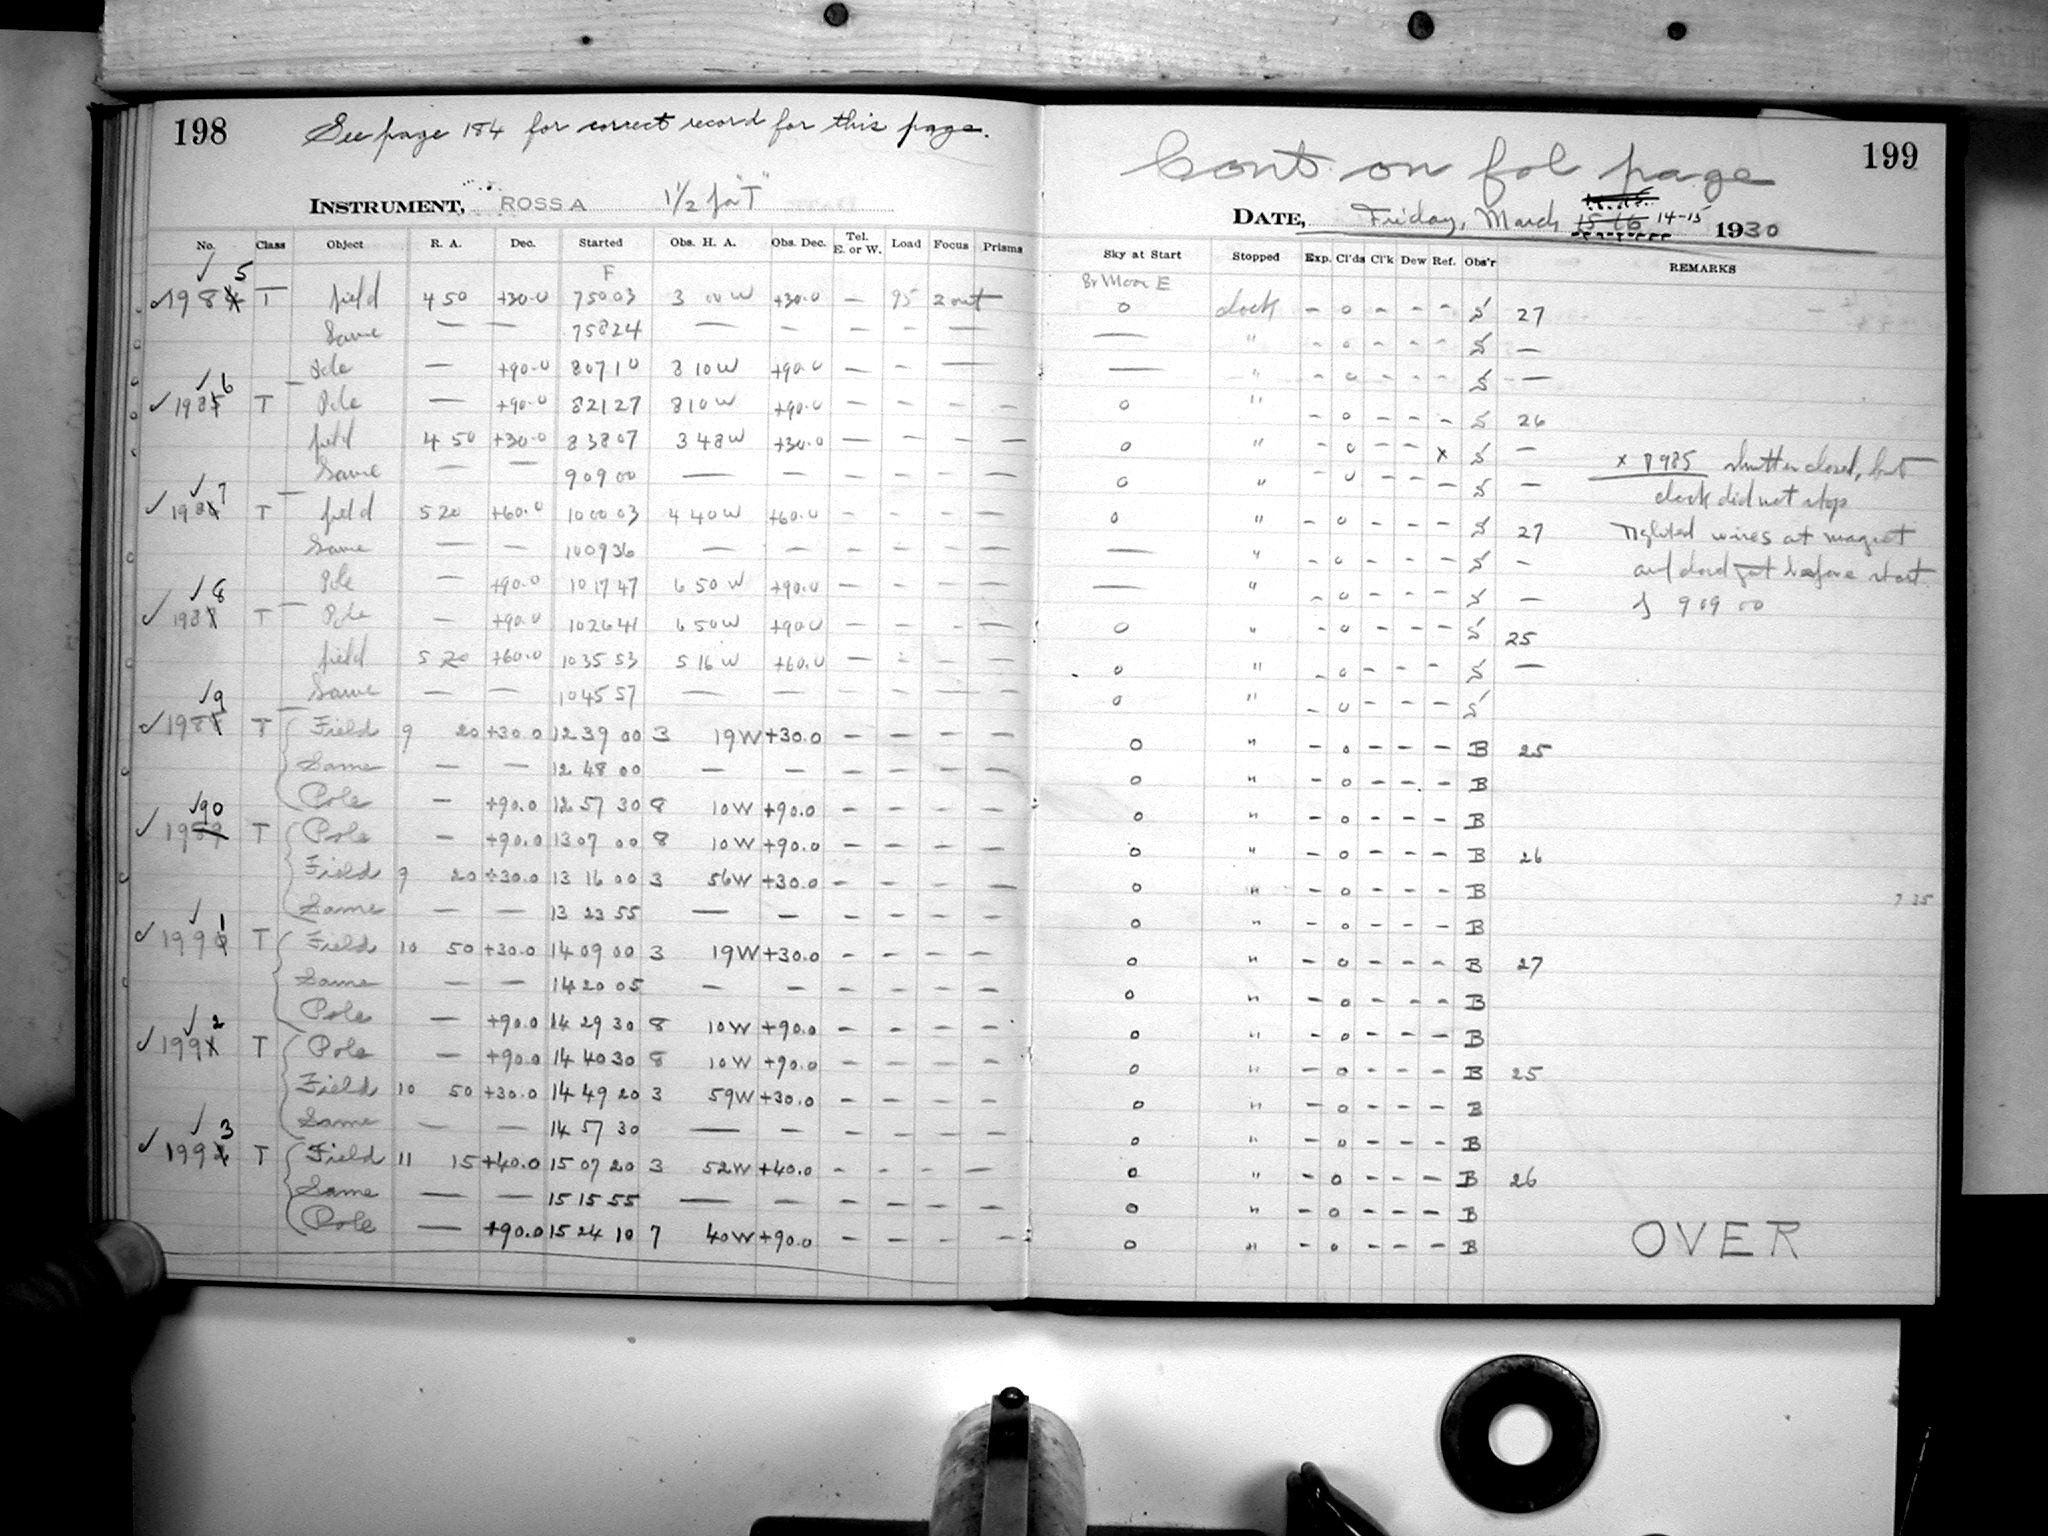 198
See page 184 for correct record for this page.
INSTRUMENT, ROSS A 1½ fa "T"
No. Class Object R. A. Dec. Started Obs. H. A. Obs. Dec. Tel. E. or W. Load Focus Prisms
F
✓ 5
✓ 1984 T field 4 50 +30.0 75003 3 00 W +30.0 — 95 2 out
Same — — 75824 — — — — —
Pole — +90.0 80710 8 10 W +90.0 — — —
✓ 6
✓ 1985 T Pole — +90.0 82127 8 10 W +90.0 — — — —
field 4 50 +30.0 83807 3 48 W +30.0 — — — —
Same — — 90900 — — — — — —
✓ 7
✓ 1986 T field 5 20 +60.0 100003 4 40 W +60.0 — — — —
Same — — 100936 — — — — — —
Pole — +90.0 101747 6 50 W +90.0 — — — —
✓ 8
✓ 1987 T Pole — +90.0 102641 6 50 W +90.0 — — — —
field 5 20 +60.0 103553 5 16 W +60.0 — — — —
Same — — 104557 — — — — — —
✓ 9
✓ 1988 T Field 9 20 +30.0 12 39 00 3 19 W +30.0 — — — —
Same — — 12 48 00 — — — — — —
Pole — +90.0 12 57 30 8 10 W +90.0 — — — —
✓ 90
✓ 1989 T Pole — +90.0 13 07 00 8 10 W +90.0 — — — —
Field 9 20 +30.0 13 16 00 3 56 W +30.0 — — — —
Same — — 13 23 55 — — — — — —
✓ 1
✓ 1990 T Field 10 50 +30.0 14 09 00 3 19 W +30.0 — — — —
Same — — 14 20 05 — — — — — —
Pole — +90.0 14 29 30 8 10 W +90.0 — — — —
✓ 2
✓ 1991 T Pole — +90.0 14 40 30 8 10 W +90.0 — — — —
Field 10 50 +30.0 14 49 20 3 59 W +30.0 — — — —
Same — — 14 57 30 — — — — — —
✓ 3
✓ 1992 T Field 11 15 +40.0 15 07 20 3 52 W +40.0 — — — —
Same — — 15 15 55 — — — — — —
Pole — +90.0 15 24 10 7 40 W +90.0 — — — —
199
Cont on fol page
DATE, Friday, March 15-16 14-15 1930
Sky at Start Stopped Exp. Cl'ds Cl'k Dew Ref. Obs'r REMARKS
Br Moon E
0 clock — 0 — — — S 27
— " — 0 — — — S —
— " — 0 — — — S —
0 " — 0 — — — S 26
0 " — 0 — — x S — x 1985 shutter closed, but
0 " — 0 — — — S — clock did not stop
0 " — 0 — — — S 27 Tighted wires at magnet
— " — 0 — — — S — and before start
— " — 0 — — — S — of 9 09 00
0 " — 0 — — — S 25
0 " — 0 — — — S —
0 " — 0 — — — S
0 " — 0 — — — B 25
0 " — 0 — — — B
0 " — 0 — — — B
0 " — 0 — — — B 26
0 " — 0 — — — B 7 35
0 " — 0 — — — B
0 " — 0 — — — B 27
0 " — 0 — — — B
0 " — 0 — — — B
0 " — 0 — — — B 25
0 " — 0 — — — B
0 " — 0 — — — B
0 " — 0 — — — B 26
0 " — 0 — — — B
0 " — 0 — — — B
OVER